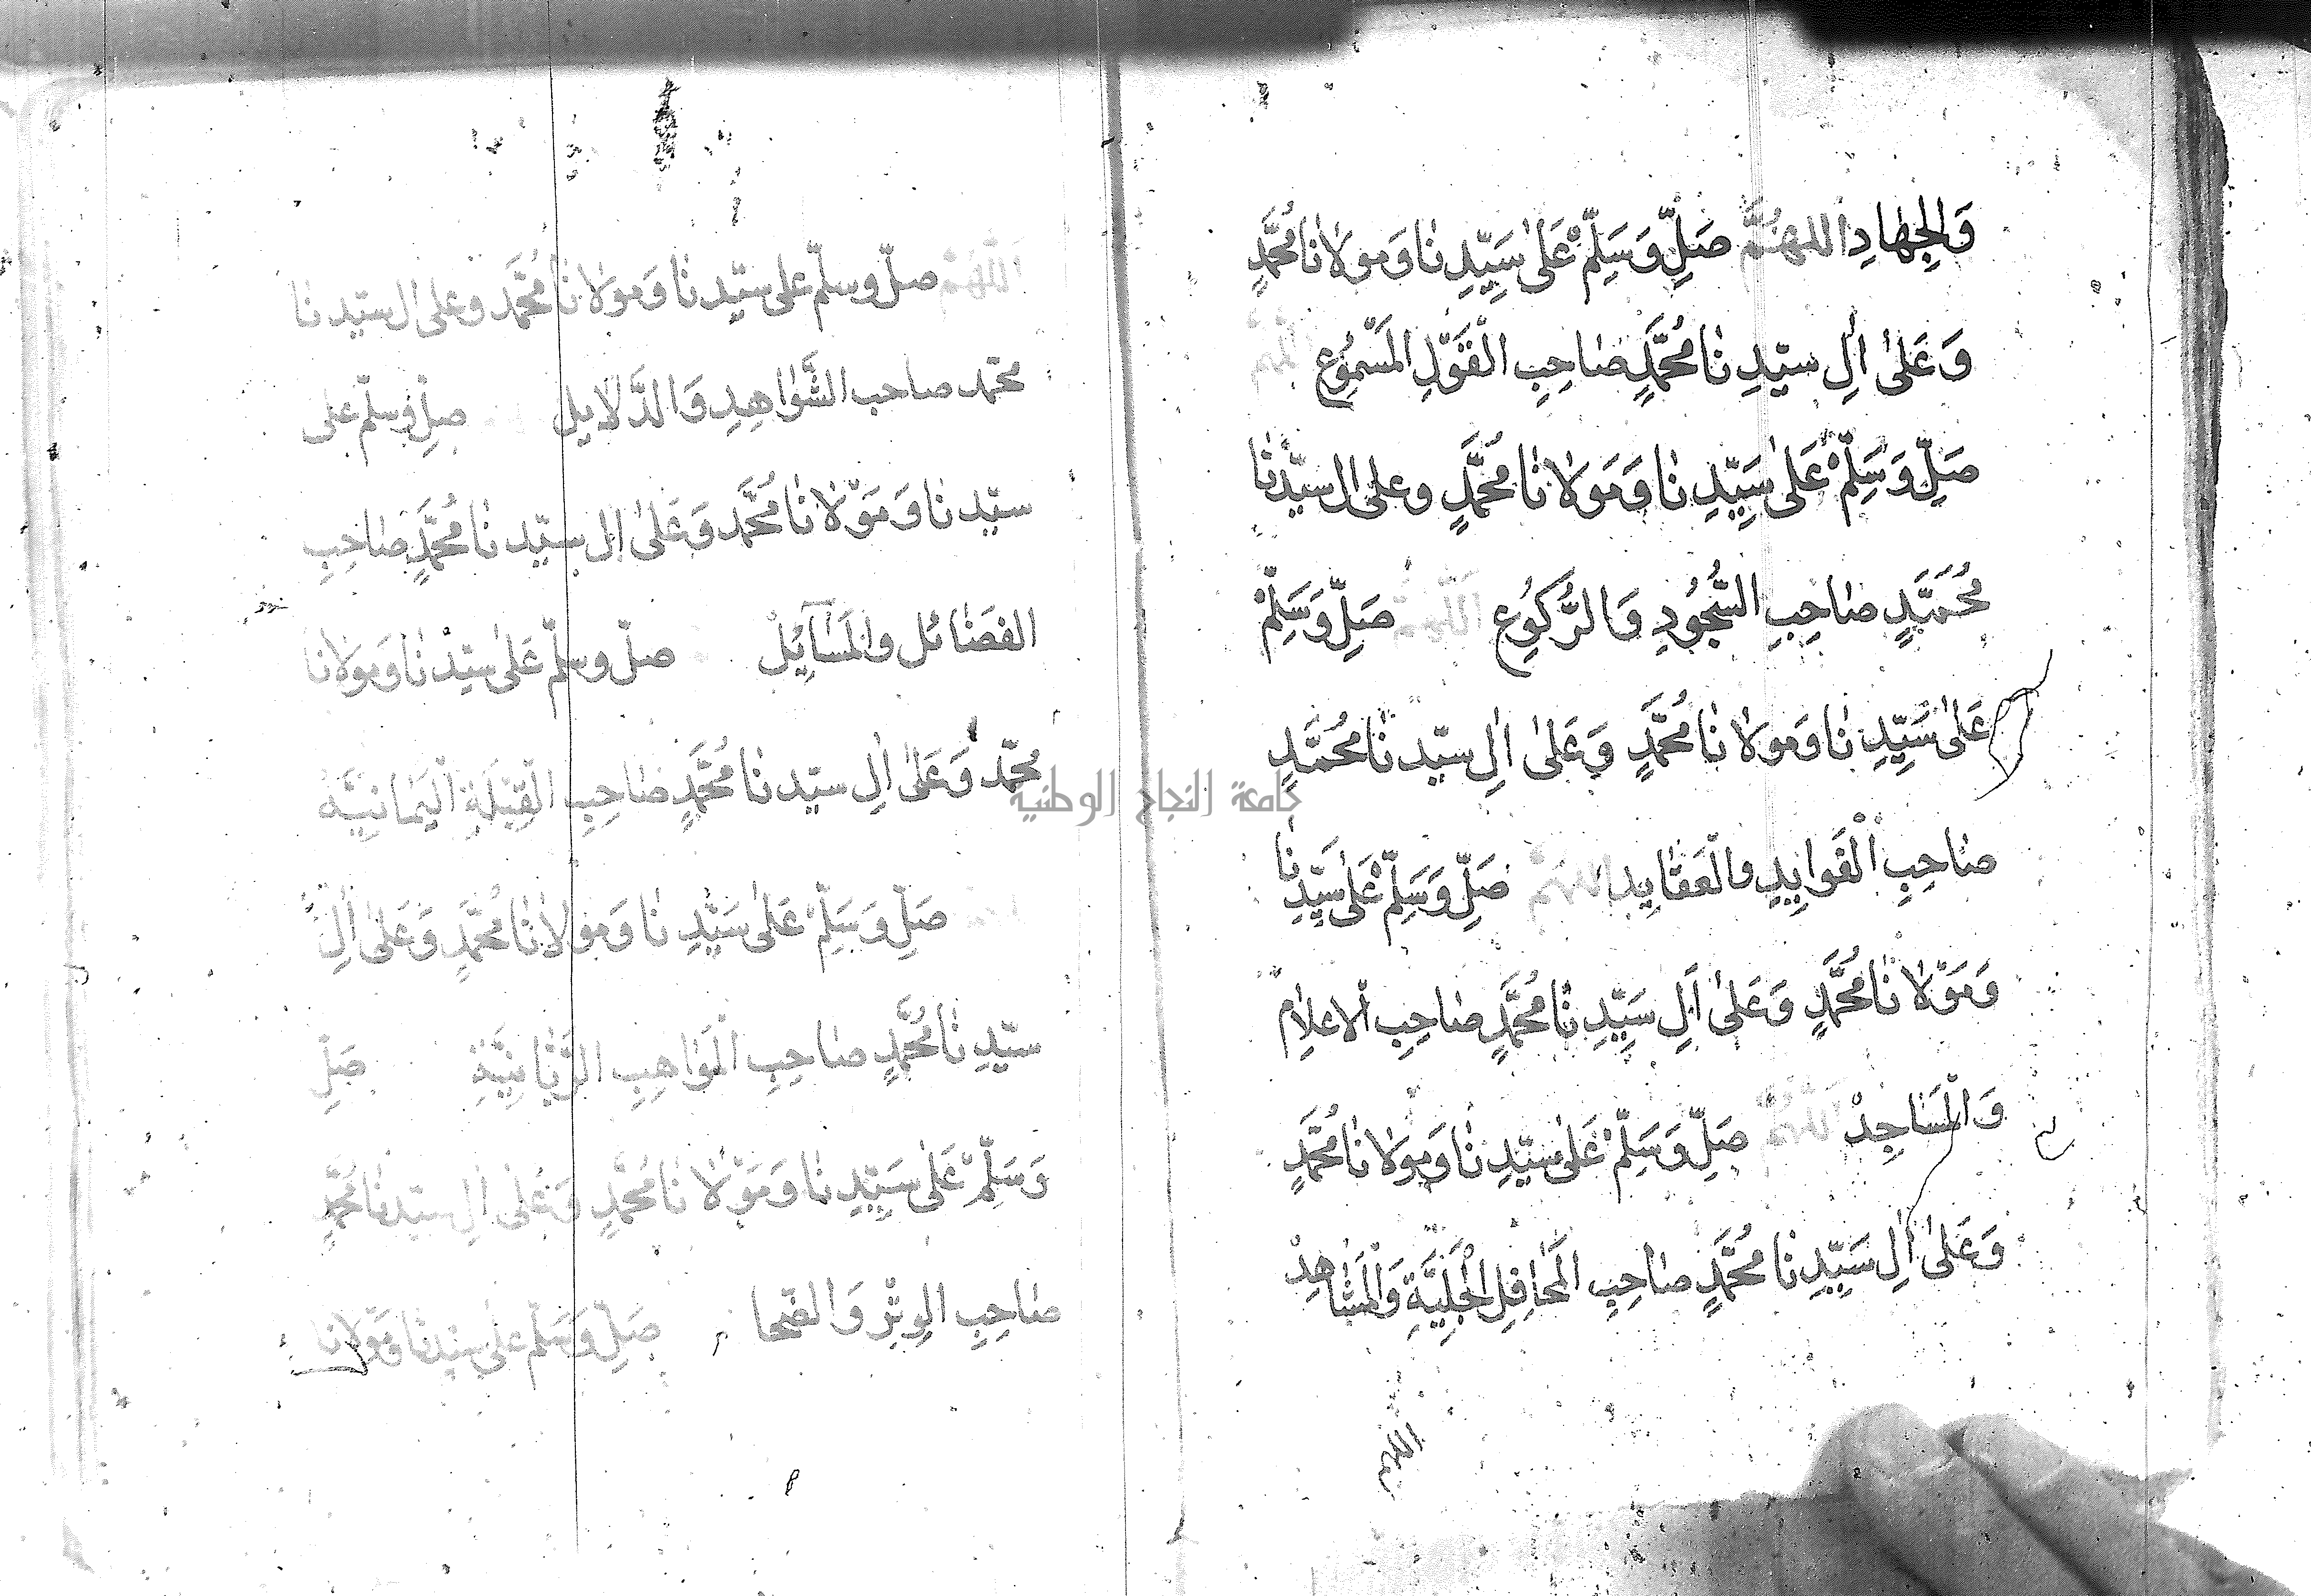 وَالْجِهَادِ اللهُمَّ صَلِّ وَسَلِّمْ عَلَىٰ سَيِّدِنَا وَمَولَانَا مُحَمَّدٍ
وَعَلَىٰ اٰلِ سيّدِنَا مُحَمَّدٍ صَاحِبِ الْقَوْلِ الْمَسْمُوعِ اللهم
صَلِّ وَسَلِّمْ عَلَىٰ سَيِّدِنَا وَمَولَانَا مُحَمَّدٍ وعلىٰ اٰل سيّدِنَا
مُحَمَّدٍ صَاحِبِ السُّجُودِ وَالرُّكُوعِ اَللّٰهُمَّ صَلِّ وَسَلِّمْ
عَلىٰ سَيِّدِنَا وَمَولَانَا مُحَمَّدٍ وَعَلىٰ اٰلِ سيّدنَا مُحَمَّدٍ
صَاحِبِ الْفَوَايِدِ والْعَقَايِدِ اللهُمَّ صَلِّ وَسَلِّمْ عَلىٰ سَيِّدِنَا
وَمَوْلَانَا مُحَمَّدٍ وَعَلىٰ اٰلِ سَيِّدِنَا مُحَمَّدٍ صَاحِبِ الْاعلِامِ
وَالْمَسَاجِدْ اَللهُمَّ صَلِّ وَسَلِّمْ عَلىٰ سيّدِنَا وَمَولَانَا مُحَمَّدٍ
وَعَلىٰ اٰلِ سَيِّدِنَا مُحَمَّدٍ صَاحِبِ الْمَحَافِلِ الْجَلِيَّةِ وَالْمَشَاهِدْ
اللهم
اَللّٰهُمَّ صلّ وسلّم على سيّدنَا وَمَولَانَا مُحَمَّد وَعلىٰ اٰل سيّدنَا
محمّد صاحب الشَّوَاهِدِ وَالدَّلَايل صلِّ وسلّم على
سيّدنَا وَمَوْلَانَا مُحَمَّد وَعَلىٰ اٰل سيّدنَا مُحَمَّدٍ صَاحِبِ
الفضَائل والْمَسَآيِلْ صلّ وسلّم عَلىٰ سيّدنَا وَمَولَانَا
محمّد وَعَلىٰ اٰلِ سيّدنَا مُحَمَّدٍ صَاحِبِ الْقِبْلَةِ الْيَمَانِيَّه
صَلِّ وَسَلِّمْ عَلىٰ سَيِّدِنَا وَمَولَانَا مُحَمَّدٍ وَعَلىٰ اٰلِ
سيّدِنَا مُحَمَّدٍ صَاحِبِ الْمَوَاهِبِ الرَّبَّانِيَّةِ صَلِّ
وَسَلِّمْ عَلىٰ سَيِّدِنَا وَمَوْلَانَا مُحَمَّدٍ وَعَلىٰ اٰلِ سيّدنَا مُحَمَّدٍ
صَاحِبِ الْوِتْرِ وَالضّحا صَلِّ وَسَلّم على سيّدنَا وَمَوْلَانَا
جامعة النجاح الوطنية